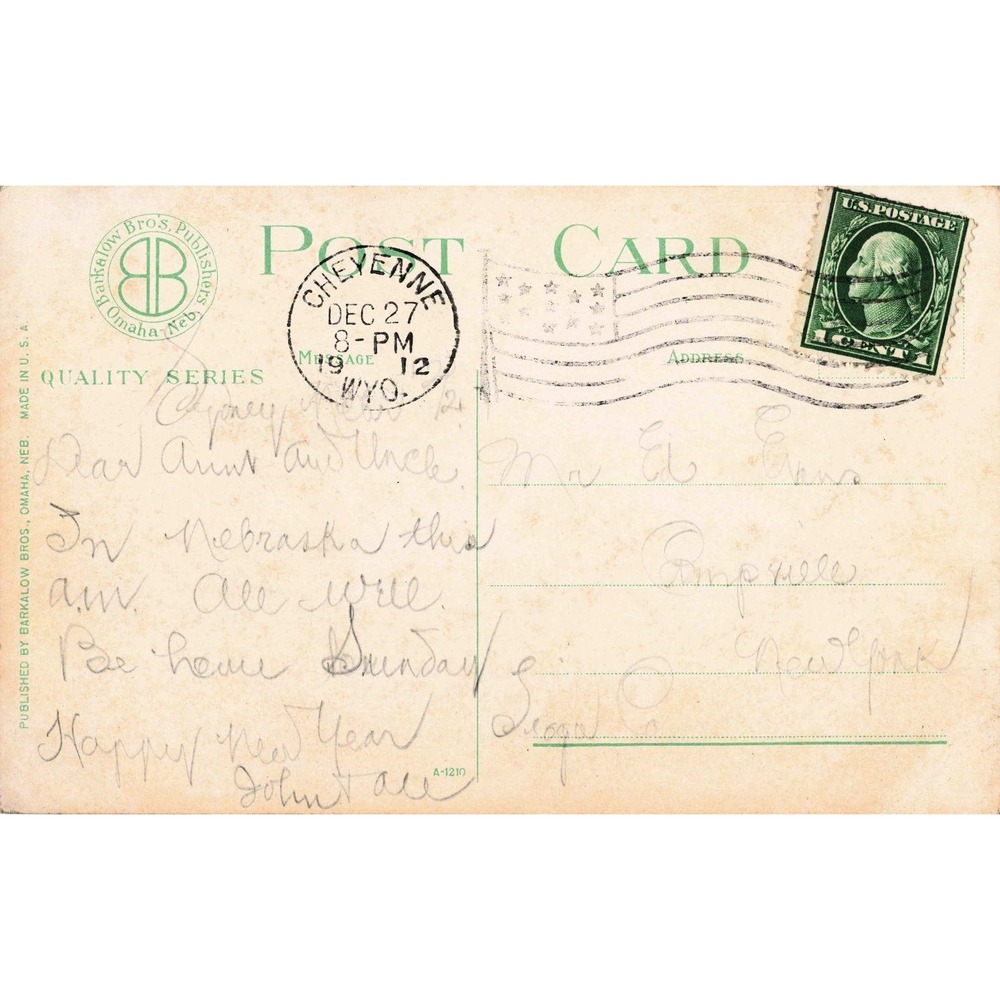 Barkalow Bro's. Publishers
Omaha, Neb.
BB
QUALITY SERIES
PUBLISHED BY BARKALOW BROS., OMAHA, NEB. MADE IN U. S. A.
POST CARD
CHEYENNE
DEC 27
8-PM
19 12
WYO.
U.S. POSTAGE
1 CENT 1
MESSAGE
ADDRESS
Dear Aunt and Uncle.
In Nebraska this
a.m. All well.
Be home Sunday
Happy New Year
John + all
A-1210
Mr Ed Evans
New York
Tioga Co